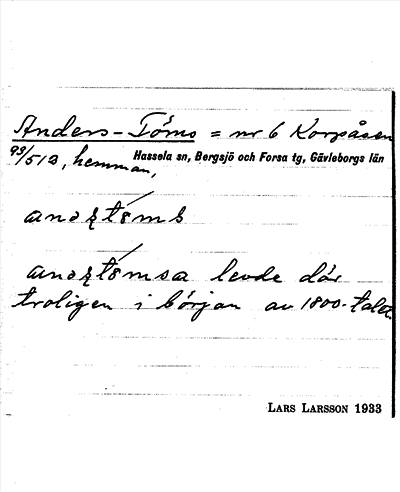 Anders-Töms = nr 6 Korpåsen
93/51a, hemman,
Hassela sn, Bergsjö och Forsa tg, Gävleborgs län
levde där
troligen i början av 1800-talet
LARS LARSSON 1933